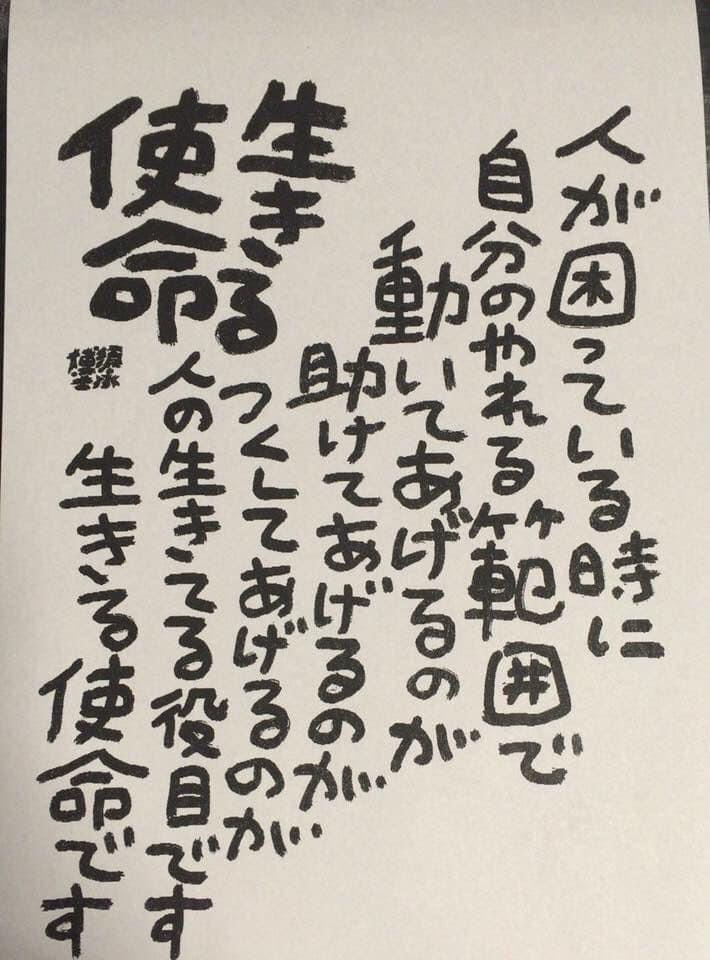 人が困っている時に
自分のやれる範囲で
動いてあげるのが
助けてあげるのが
つくしてあげるのが
人の生きてる役目です
生きる使命です
生きる
使命